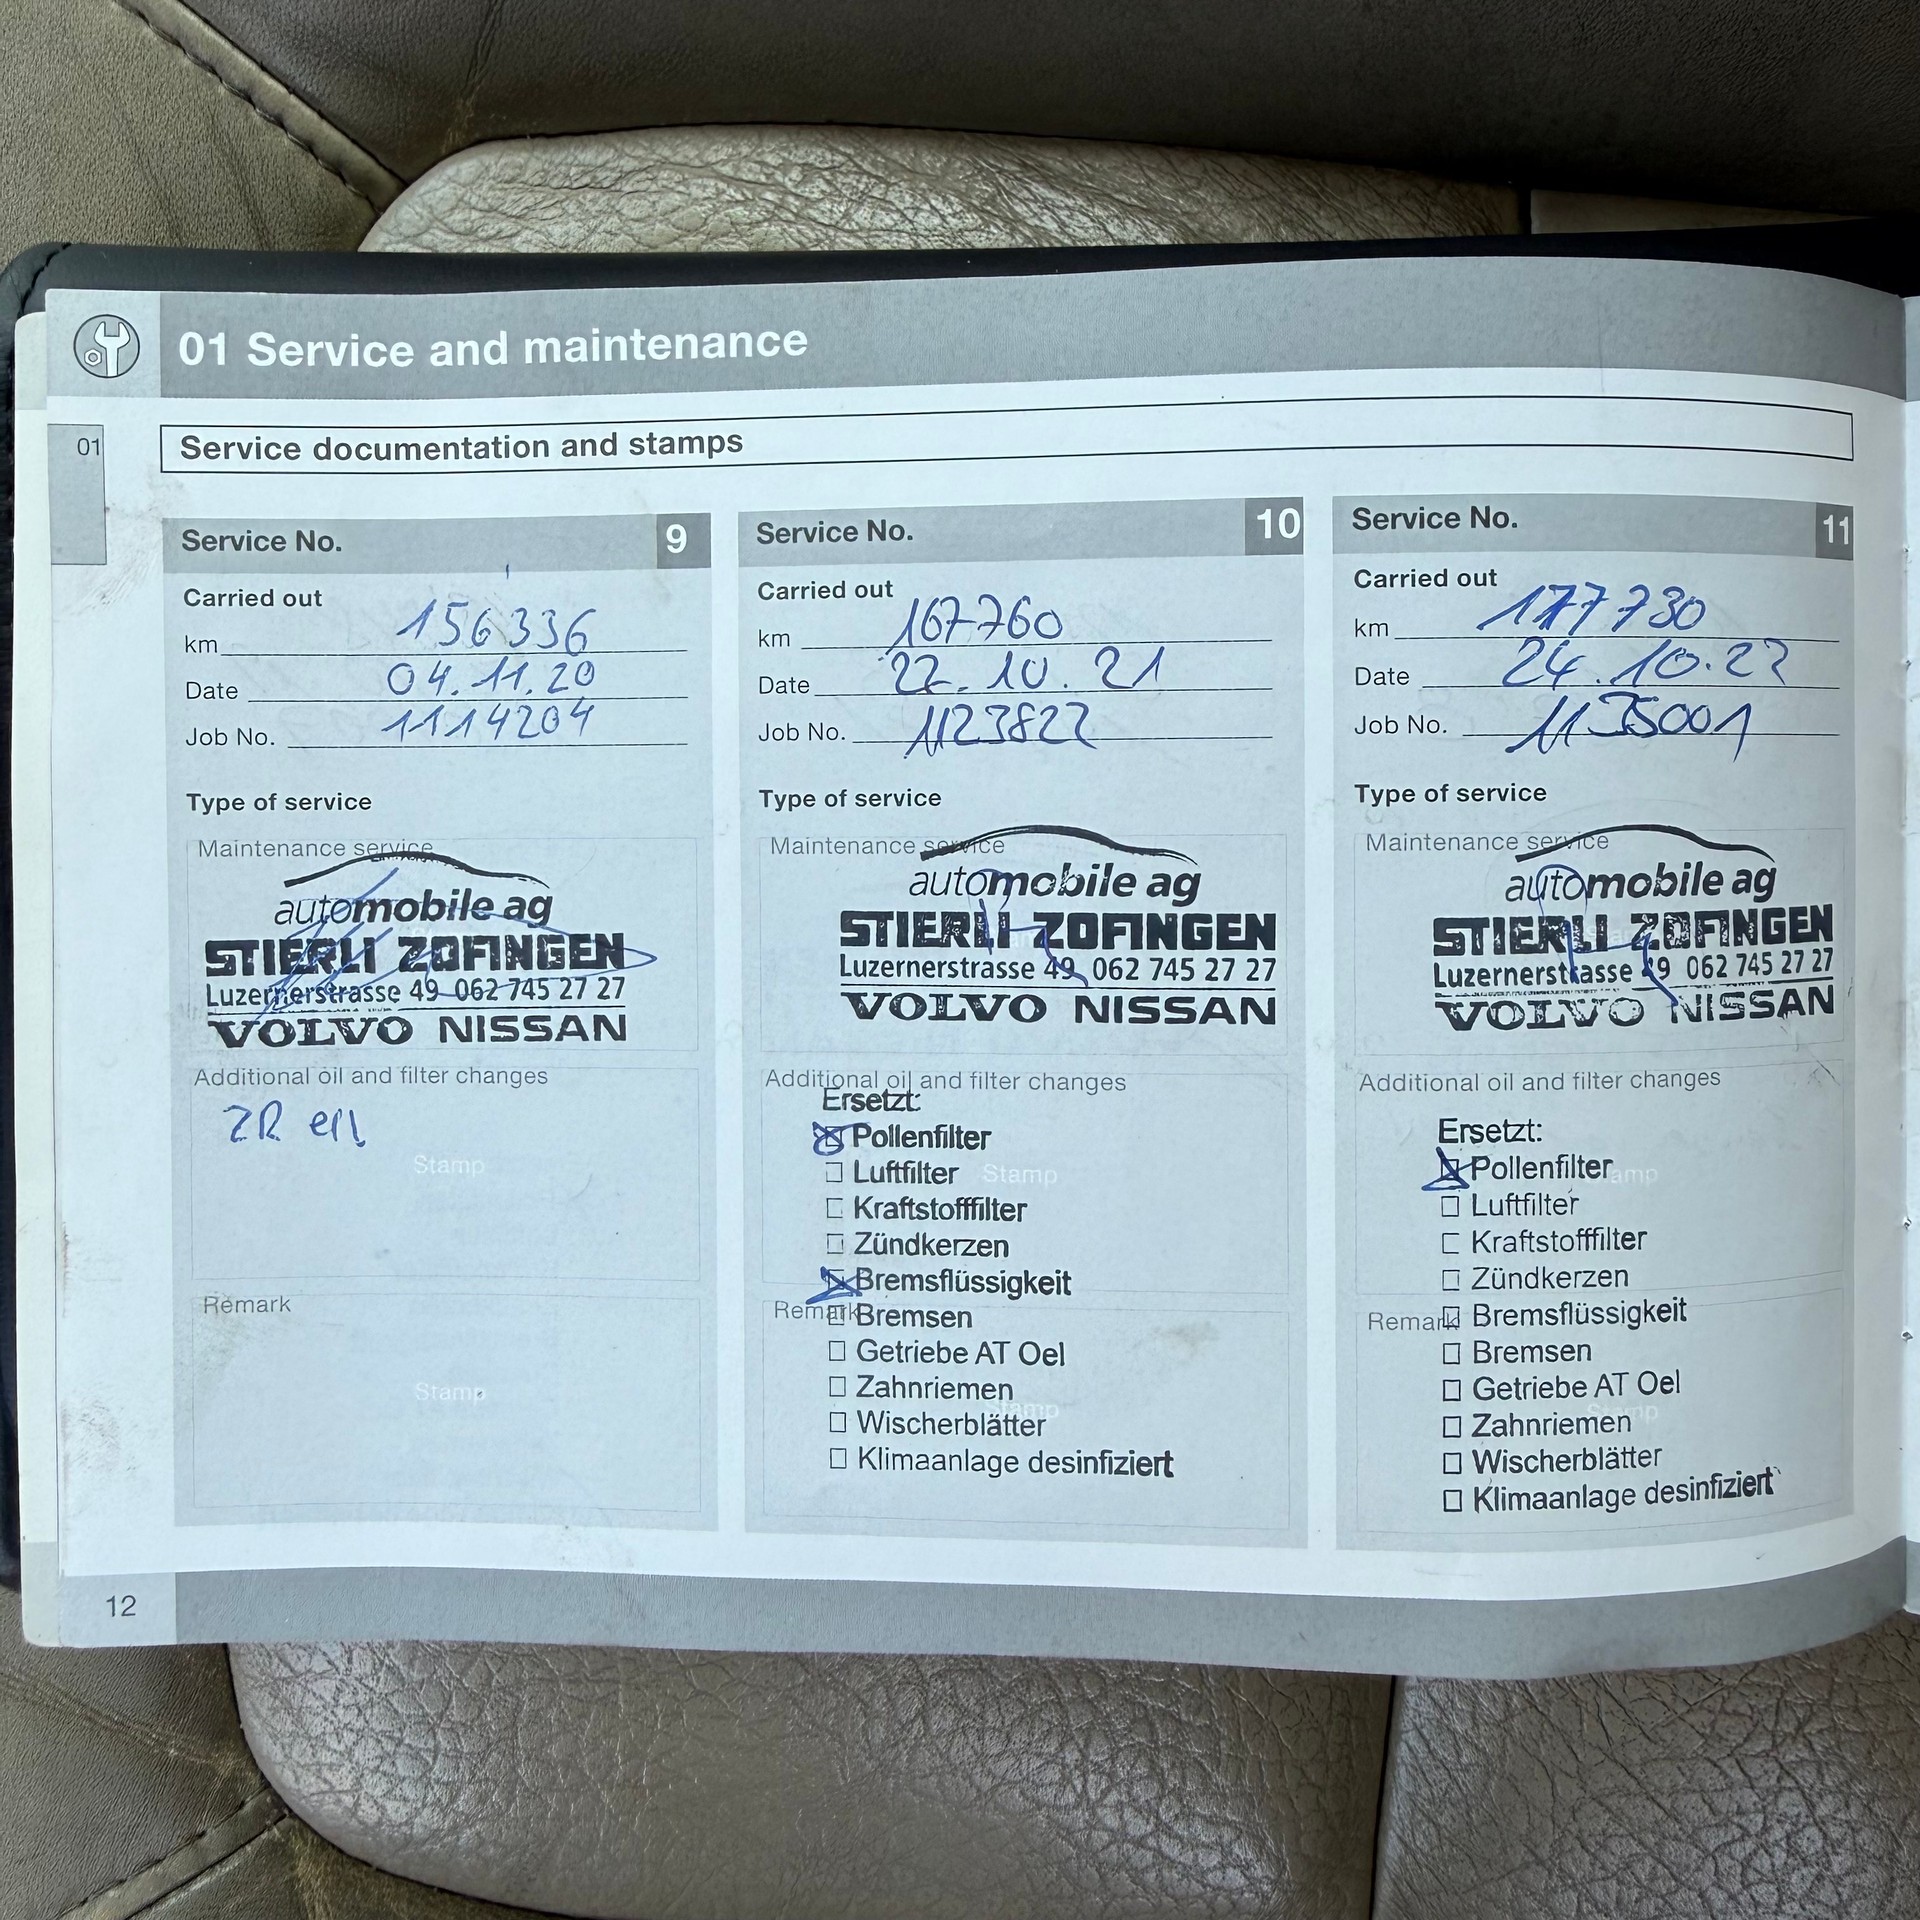 01 Service and maintenance
01
Service documentation and stamps
Service No. 9
Carried out
km 156336
Date 04.11.20
Job No. 1114204
Type of service
Maintenance service
automobile ag
STIERLI ZOFINGEN
Luzernerstrasse 49 062 745 27 27
VOLVO NISSAN
Additional oil and filter changes
ZR
Stamp
Remark
Stamp
Service No. 10
Carried out
km 167760
Date 22.10.21
Job No. 1123822
Type of service
Maintenance service
automobile ag
STIERLI ZOFINGEN
Luzernerstrasse 49 062 745 27 27
VOLVO NISSAN
Additional oil and filter changes
Ersetzt:
Pollenfilter
Luftfilter Stamp
Kraftstofffilter
Zündkerzen
Bremsflüssigkeit
Remark Bremsen
Getriebe AT Oel
Zahnriemen
Stamp
Wischerblätter
Klimaanlage desinfiziert
Service No. 11
Carried out
km 177730
Date 24.10.22
Job No. 1135001
Type of service
Maintenance service
automobile ag
STIERLI ZOFINGEN
Luzernerstrasse 49 062 745 27 27
VOLVO NISSAN
Additional oil and filter changes
Ersetzt:
Pollenfilter Stamp
Luftfilter
Kraftstofffilter
Zündkerzen
Remark Bremsflüssigkeit
Bremsen
Getriebe AT Oel
Stamp
Zahnriemen
Wischerblätter
Klimaanlage desinfiziert
12